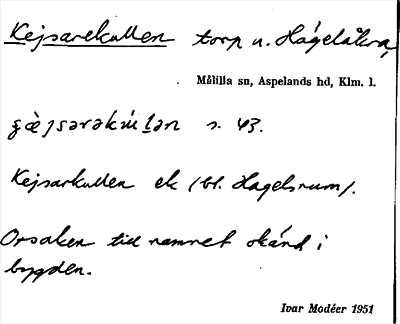 Kejsarekullen torp u. Hagelåkra,
Målilla sn, Aspelands hd, Klm. l.
s. 43.
Kejsarkullen ek (bl. Hagelsrum).
Orsaken till namnet okänd i
bygden.
Ivar Modéer 1951